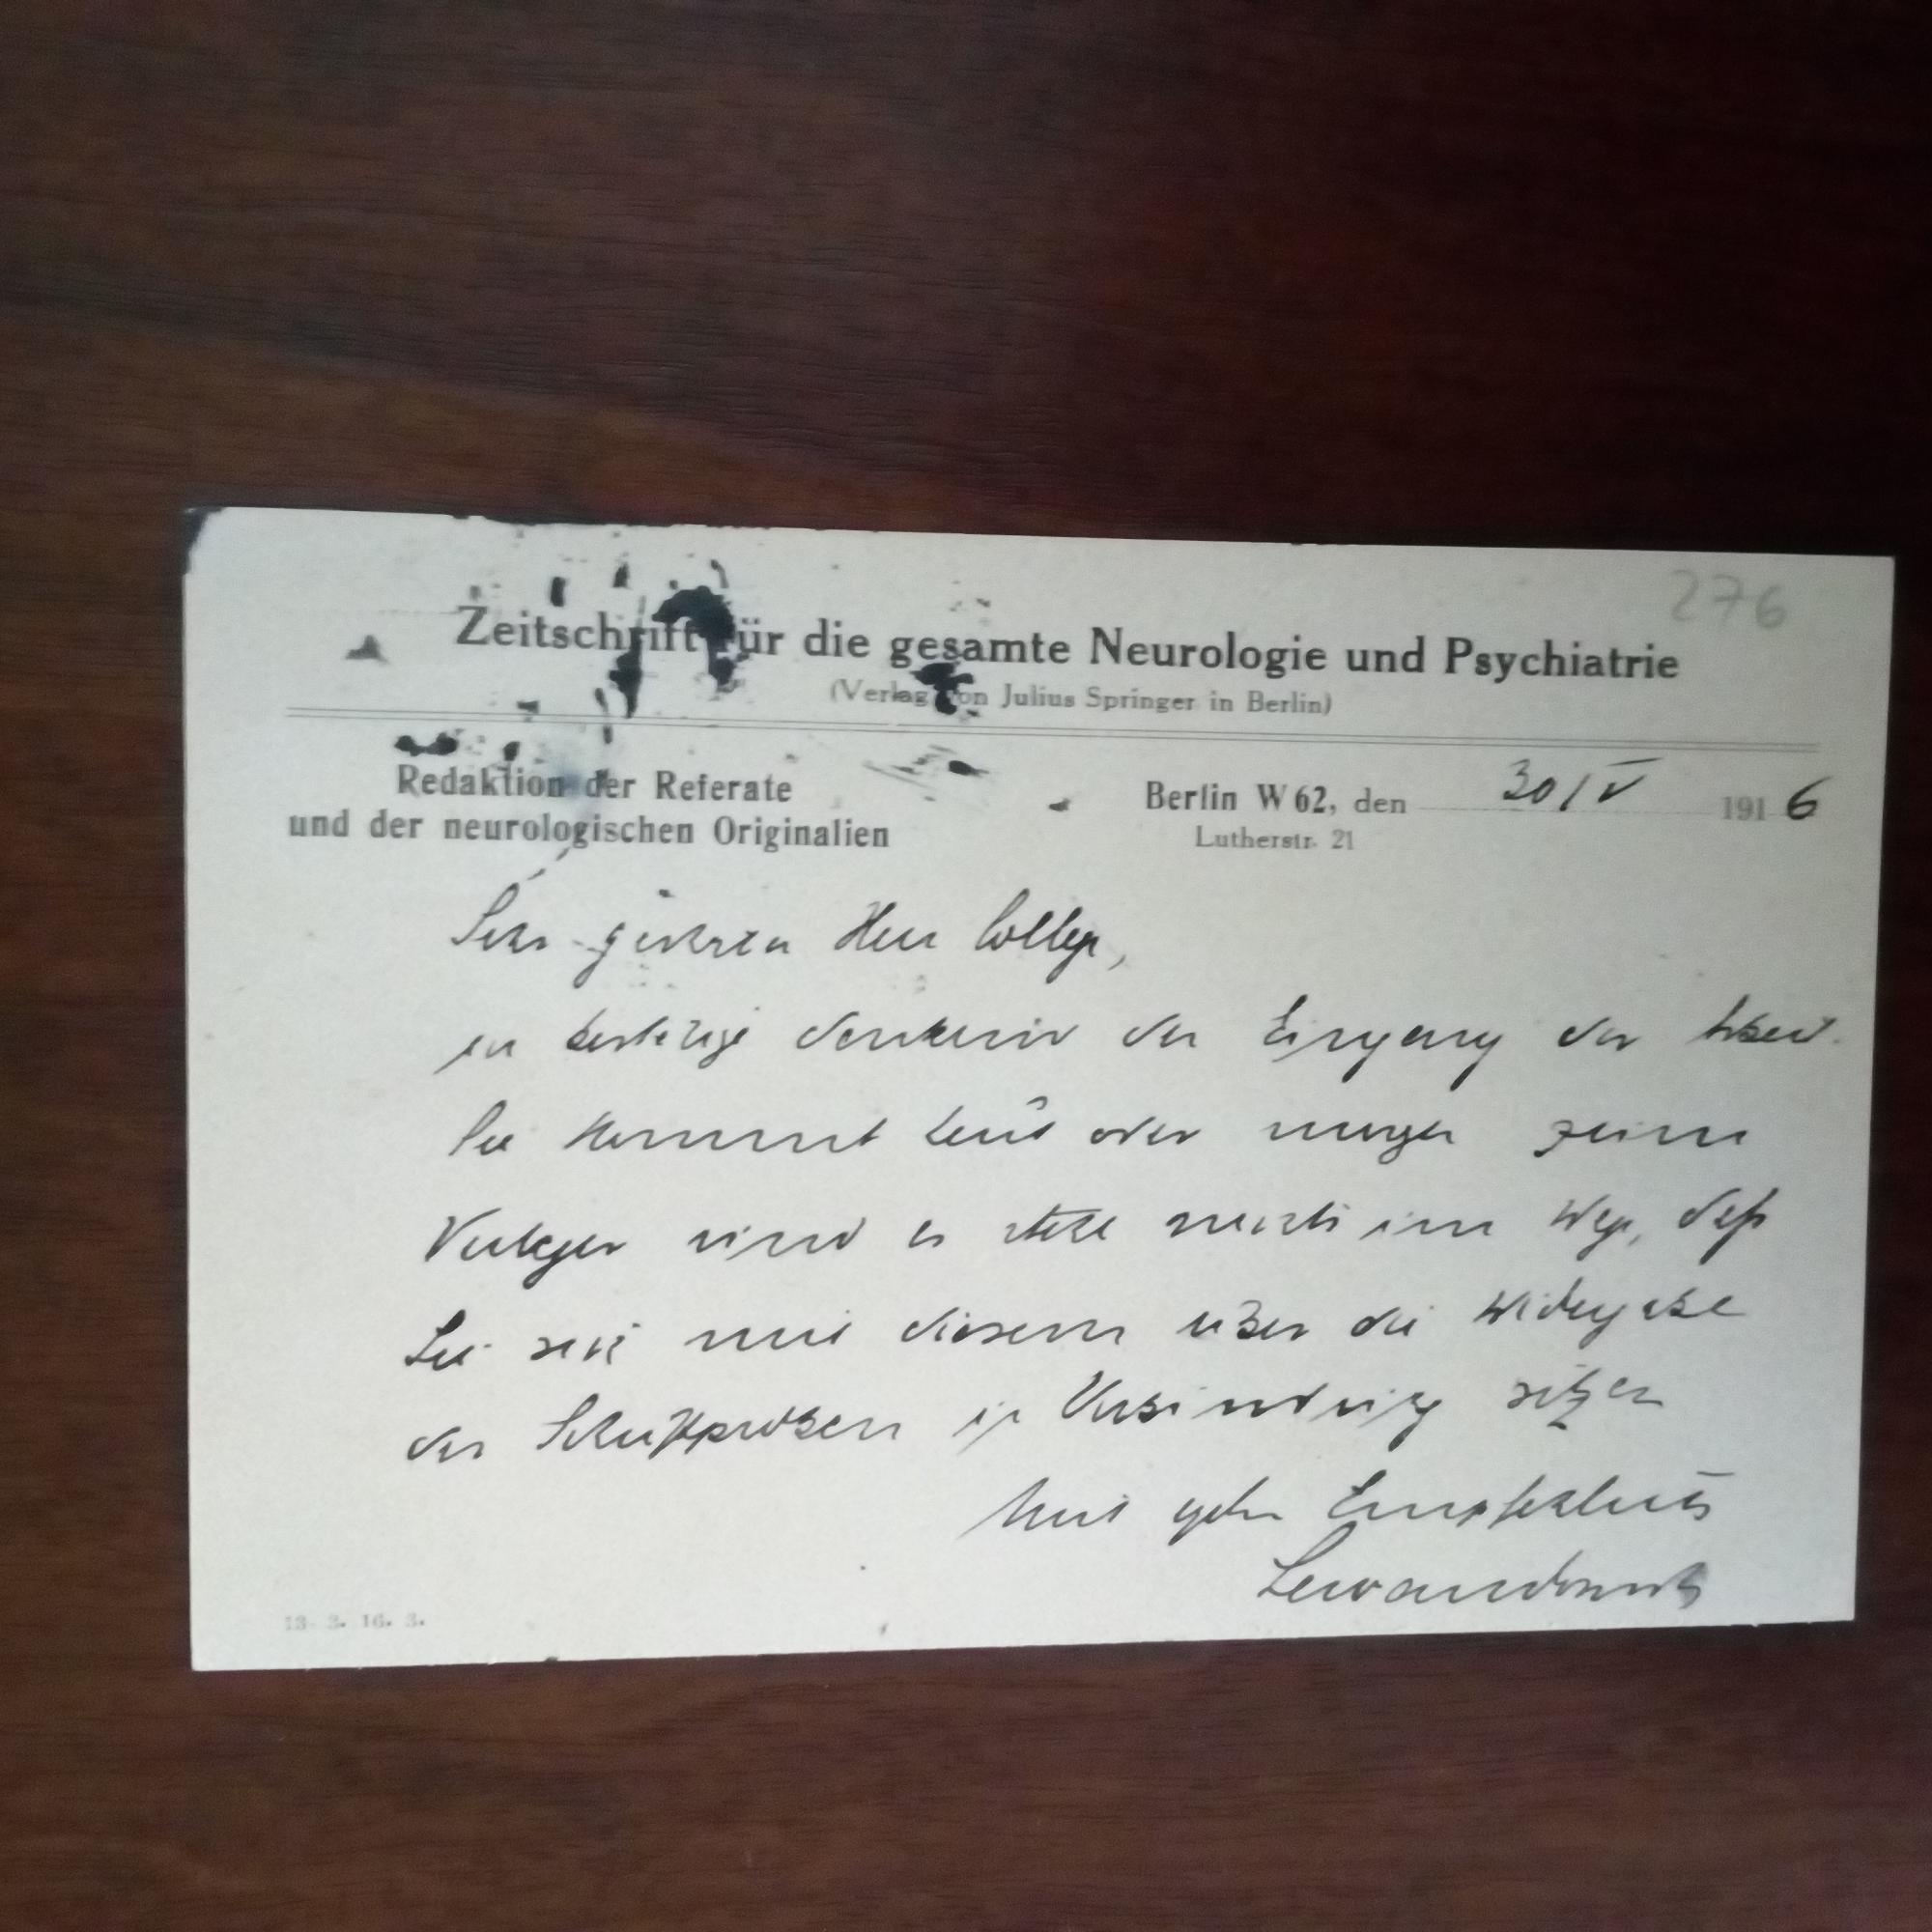 276
Zeitschrift für die gesamte Neurologie und Psychiatrie
(Verlag von Julius Springer in Berlin)
Redaktion der Referate
und der neurologischen Originalien
Berlin W 62, den 30/V 1916
Lutherstr. 21
Sehr geehrter Herr College,
ich bestätige dankend den Eingang der Arbeit.
Sie kommt heut oder morgen zum
Verleger und es steht nichts im Wege, daß
Sie sich mit diesem über die Widergabe
der Schriftproben in Verbindung setzen
Mit gehr Empfehlung
Lewandowsky
13. 3. 16. 3.